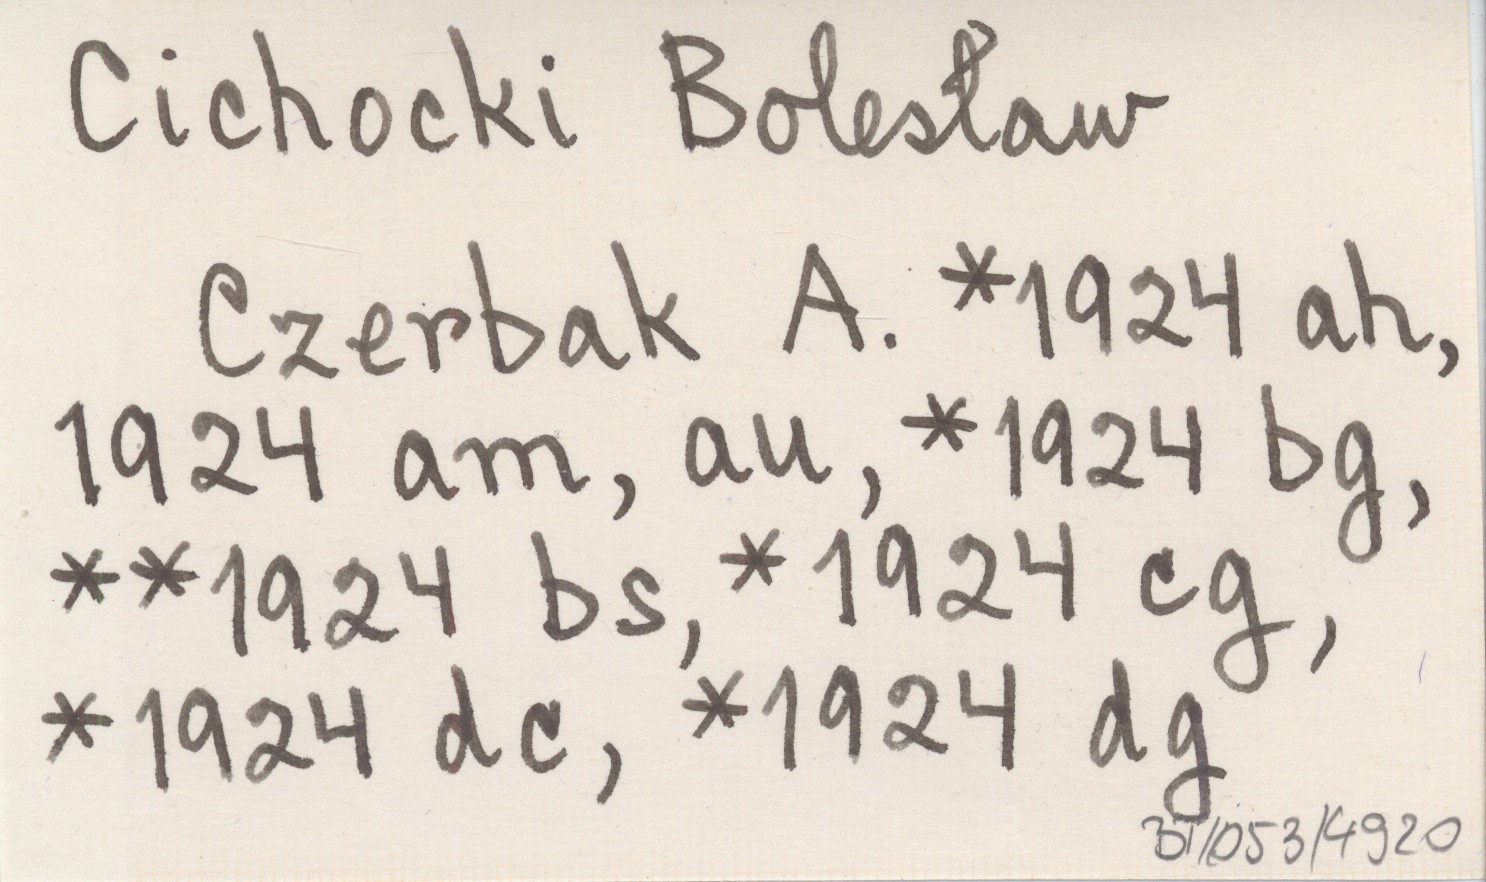 Cichocki Bolesław
Czerbak A. *1924 ah,
1924 am, au, *1924 bg,
**1924 bs, *1924 cg,
*1924 dc, *1924 dg
BT/053/4920